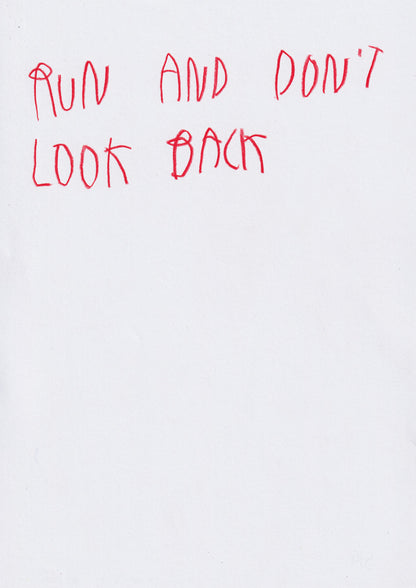 RUN AND DON'T
LOOK BACK